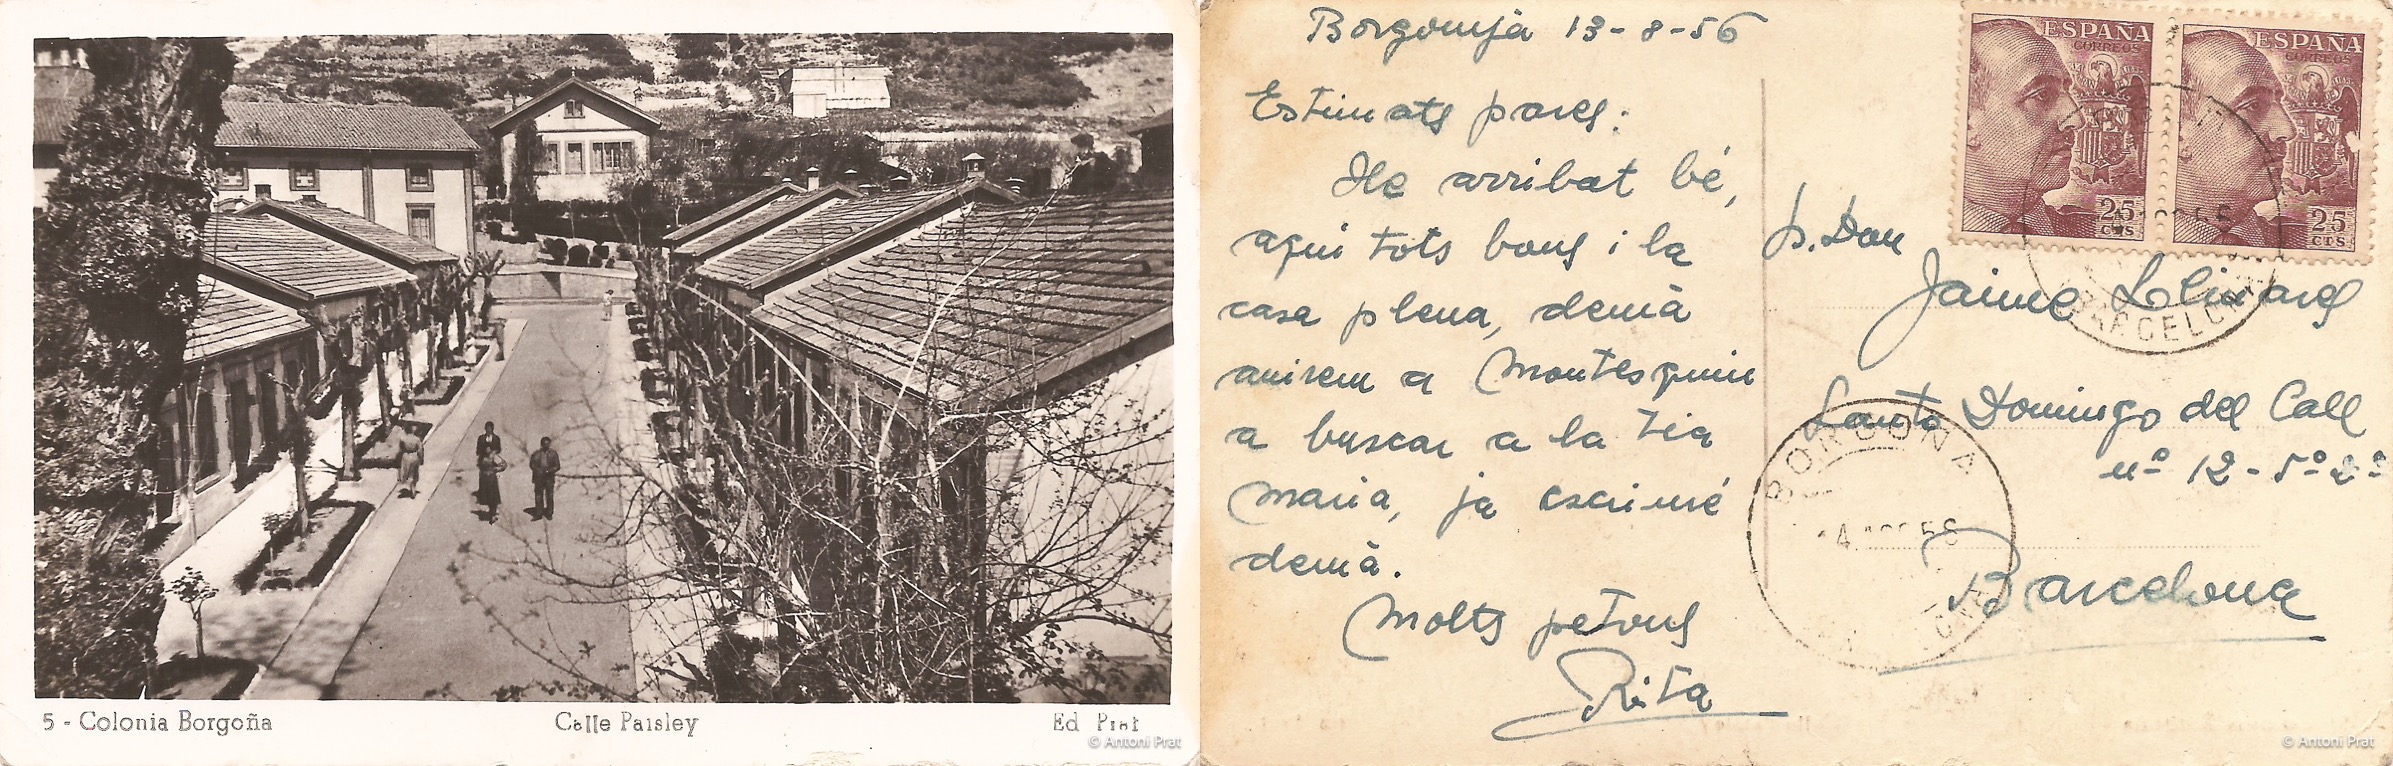 5 - Colonia Borgoña
Calle Paisley
Ed Prat
© Antoni Prat
Borgonyà 13-8-56
Estimats pares:
He arribat bé,
aqui tots bons i la
casa plena, demà
anirem a Montesquiu
a buscar a la tia
Maria, ja escriuré
demà.
Molts petons
Rita
ESPAÑA
CORREOS
25
CTS
ESPAÑA
CORREOS
25
CTS
BARCELONA
S. Don
Jaime Llinares
Santo Domingo del Call
nº 12 - 5º 2ª
Barcelona
BORGOÑA
© Antoni Prat